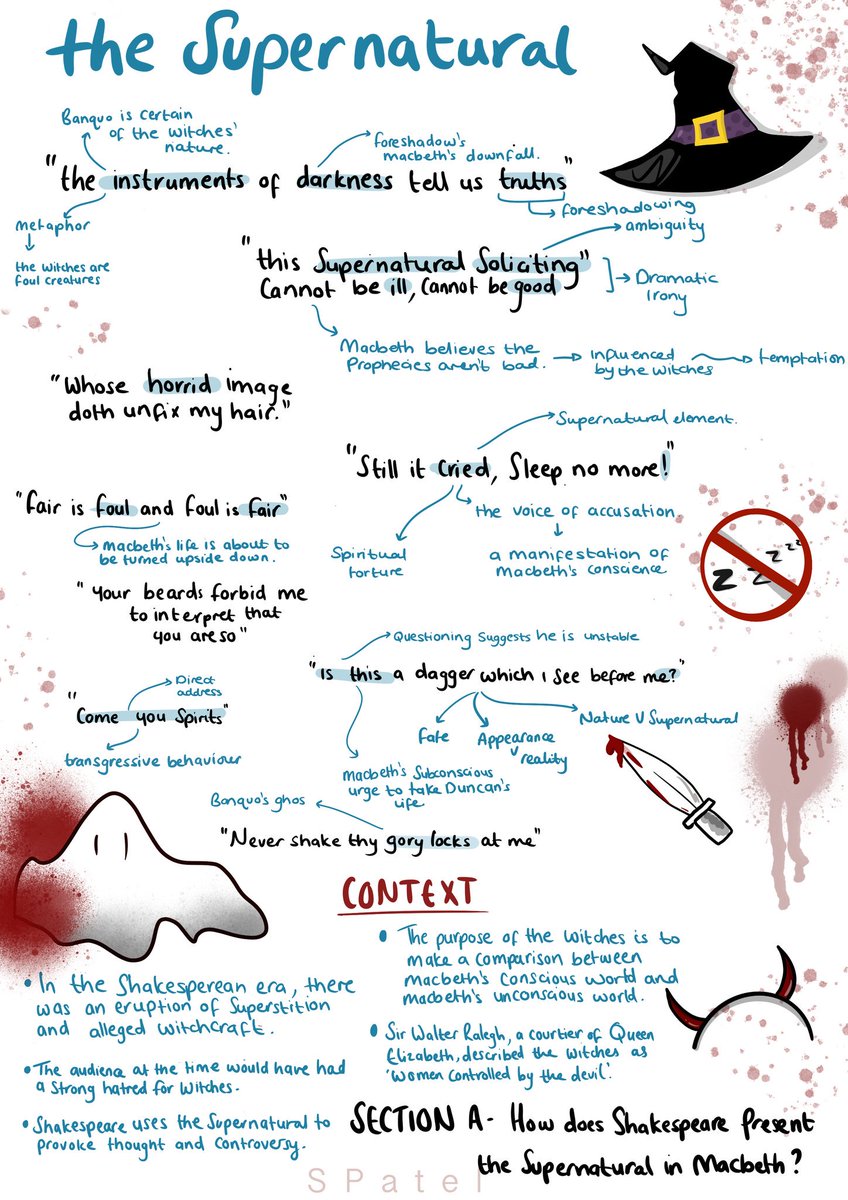 the Supernatural
Banquo is certain
of the witches'
nature.
foreshadow's
macbeth's downfall.
"the instruments of darkness tell us truths"
metaphor
the witches are
foul creatures
foreshadowing
ambiguity
"this Supernatural Soliciting"
Cannot be ill, Cannot be good
Dramatic
Irony
Macbeth believes the
Prophecies aren't bad.
influenced
by the witches
temptation
"Whose horrid image
doth unfix my hair."
Supernatural element.
"Still it cried, Sleep no more!"
the voice of accusation
a manifestation of
Macbeth's conscience
Spiritual
torture
"fair is foul and foul is fair"
macbeth's life is about to
be turned upside down.
"your beards forbid me
to interpret that
you are so"
z z z z z
Questioning Suggests he is unstable
"is this a dagger which i see before me?"
Direct
address
"Come you Spirits"
transgressive behaviour
Fate
Appearance
V
reality
Nature V Supernatural
macbeth's Subconscious
urge to take Duncan's
life
Banquo's ghos
"Never shake thy gory locks at me"
CONTEXT
• In the Shakesperean era, there
was an eruption of Superstition
and alleged witchcraft.
• The audience at the time would have had
a Strong hatred for witches.
• Shakespeare uses the Supernatural to
provoke thought and controversy.
• The purpose of the witches is to
make a comparison between
macbeth's conscious world and
macbeth's unconscious world.
• Sir Walter Ralegh, a courtier of Queen
Elizabeth, described the witches as
'women controlled by the devil'.
SECTION A- How does Shakespeare Present
the Supernatural in Macbeth?
SPatel